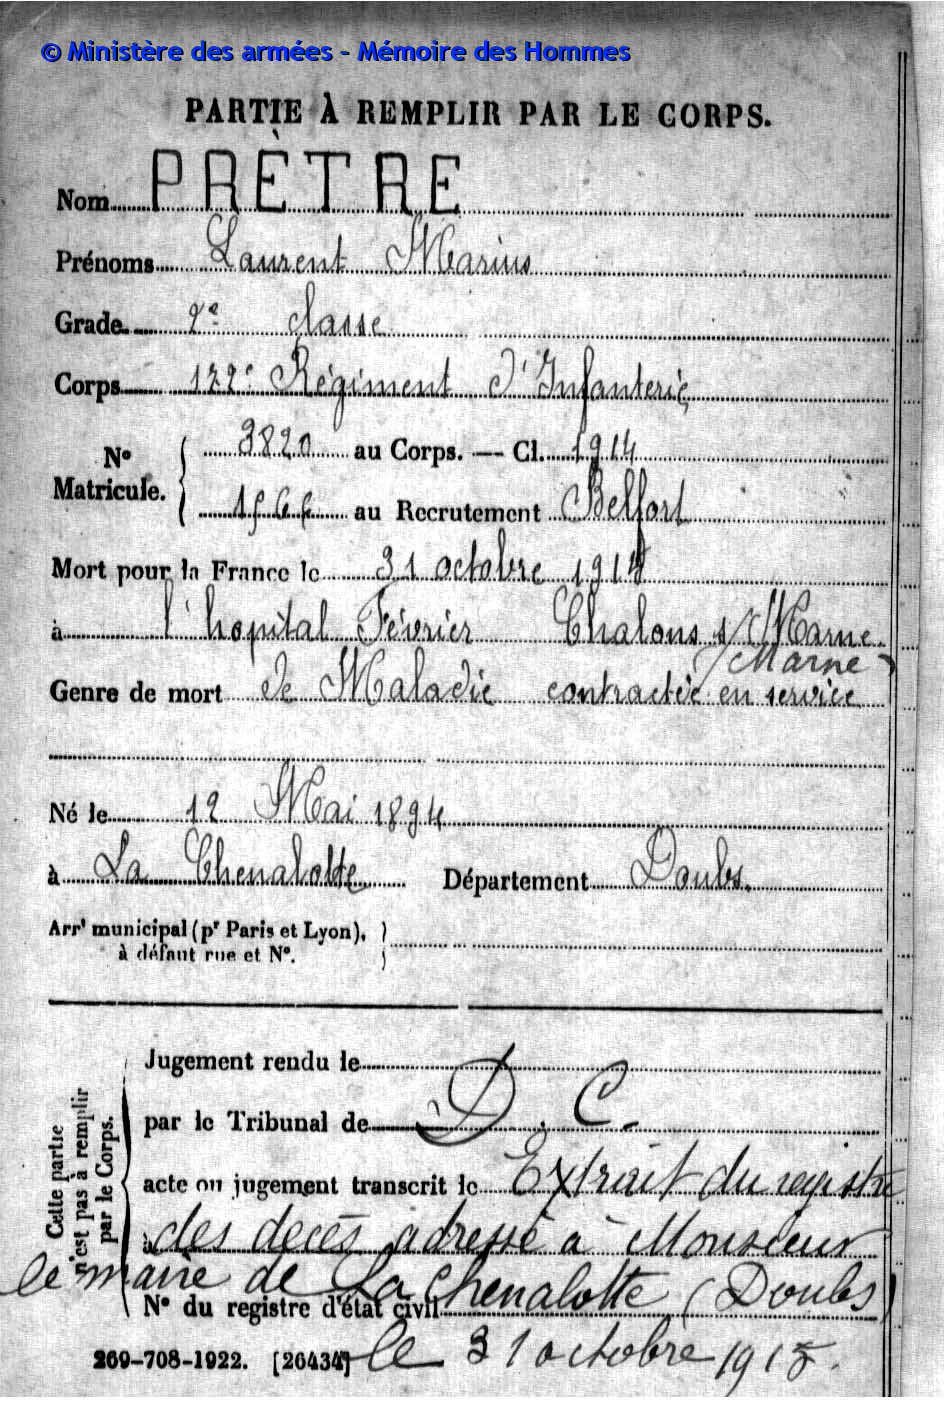 © Ministère des armées - Mémoire des Hommes
PARTIE À REMPLIR PAR LE CORPS.
Nom PRÈTRE
Prénoms Laurent Marius
Grade 2e classe
Corps 172e Régiment d'Infanterie
No Matricule. 3820 au Corps. — Cl. 1914
1566 au Recrutement Belfort
Mort pour la France le 31 octobre
à l'hopital Février Chalons s/Marne
Marne
Genre de mort de Maladie contractée en service
Né le 12 Mai 1894
à La Chenalotte Département Doubs.
Arrt municipal (pr Paris et Lyon),
à défaut rue et No.
Cette partie
n'est pas à remplir
par le Corps.
Jugement rendu le
par le Tribunal de D. C.
acte ou jugement transcrit le Extrait du registre
à des décès adressé à Monsieur
le maire de La Chenalotte (Doubs)
No du registre d'état civil
269-708-1922. [26434] le 31 octobre